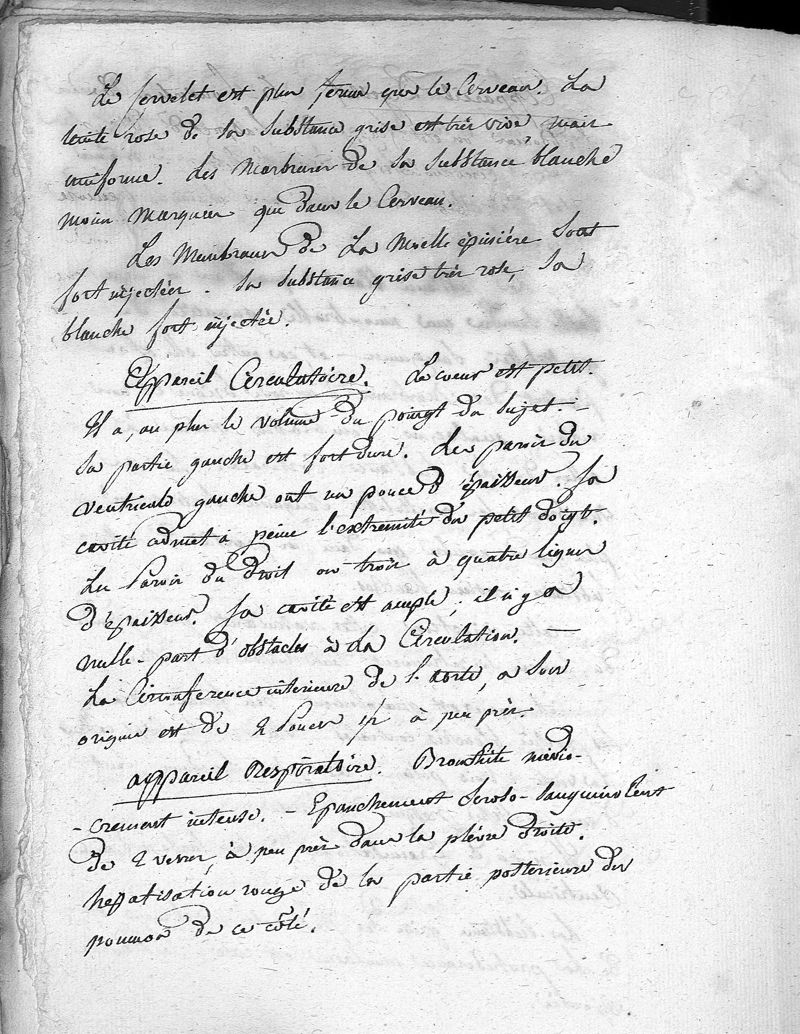 Le servelet est plus ferme que le Cerveau. La
teinte rose de sa substance grise est très vive, mais
uniforme. des Marbrures de sa substance blanche
moins marquées que dans le Cerveau.
Les Membranes de La Moelle épinière Sont
fort injectées. Sa substance grise très rose, Sa
blanche fort injectée.
Appareil Circulatoire. Le coeur est petit.
Il a, au plus le volume du poingt du Sujet. -
Sa partie gauche est fort dure. Les parois du
ventricule gauche ont un pouce d'épaisseur. Sa
cavité admet à peine l'extremité du petit doigt.
Les Parois du droit ont trois à quatre lignes
d'épaisseur. Sa cavité est ample, il n'y a
nulle-part d'obstacles à La Circulation. -
La Circonference interieure de l'aorte, a son
origine est de 2 Pouces 1/2 à peu près.
appareil Respiratoire. Bronchite médio-
-crement intense. - Epanchement Seroso-Sanguinolent
de 2 verres, à peu près dans la plèvre droite.
hepatisation rouge de la partie posterieure du
poumon de ce côté.